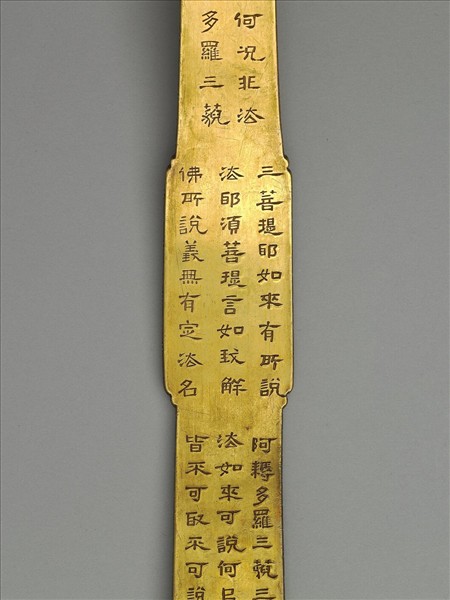 何況非法
多羅三藐
三菩提耶如來有所說
法耶須菩提言如我解
佛所說義無有定法名
阿耨多羅三藐三
法如來可說何以
皆不可取不可說